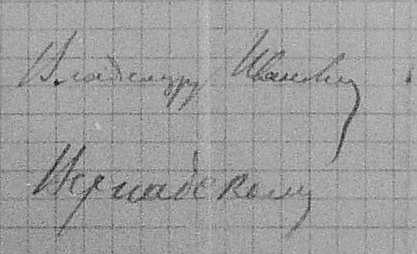 Владимиру Ивановичу
Вернадскому